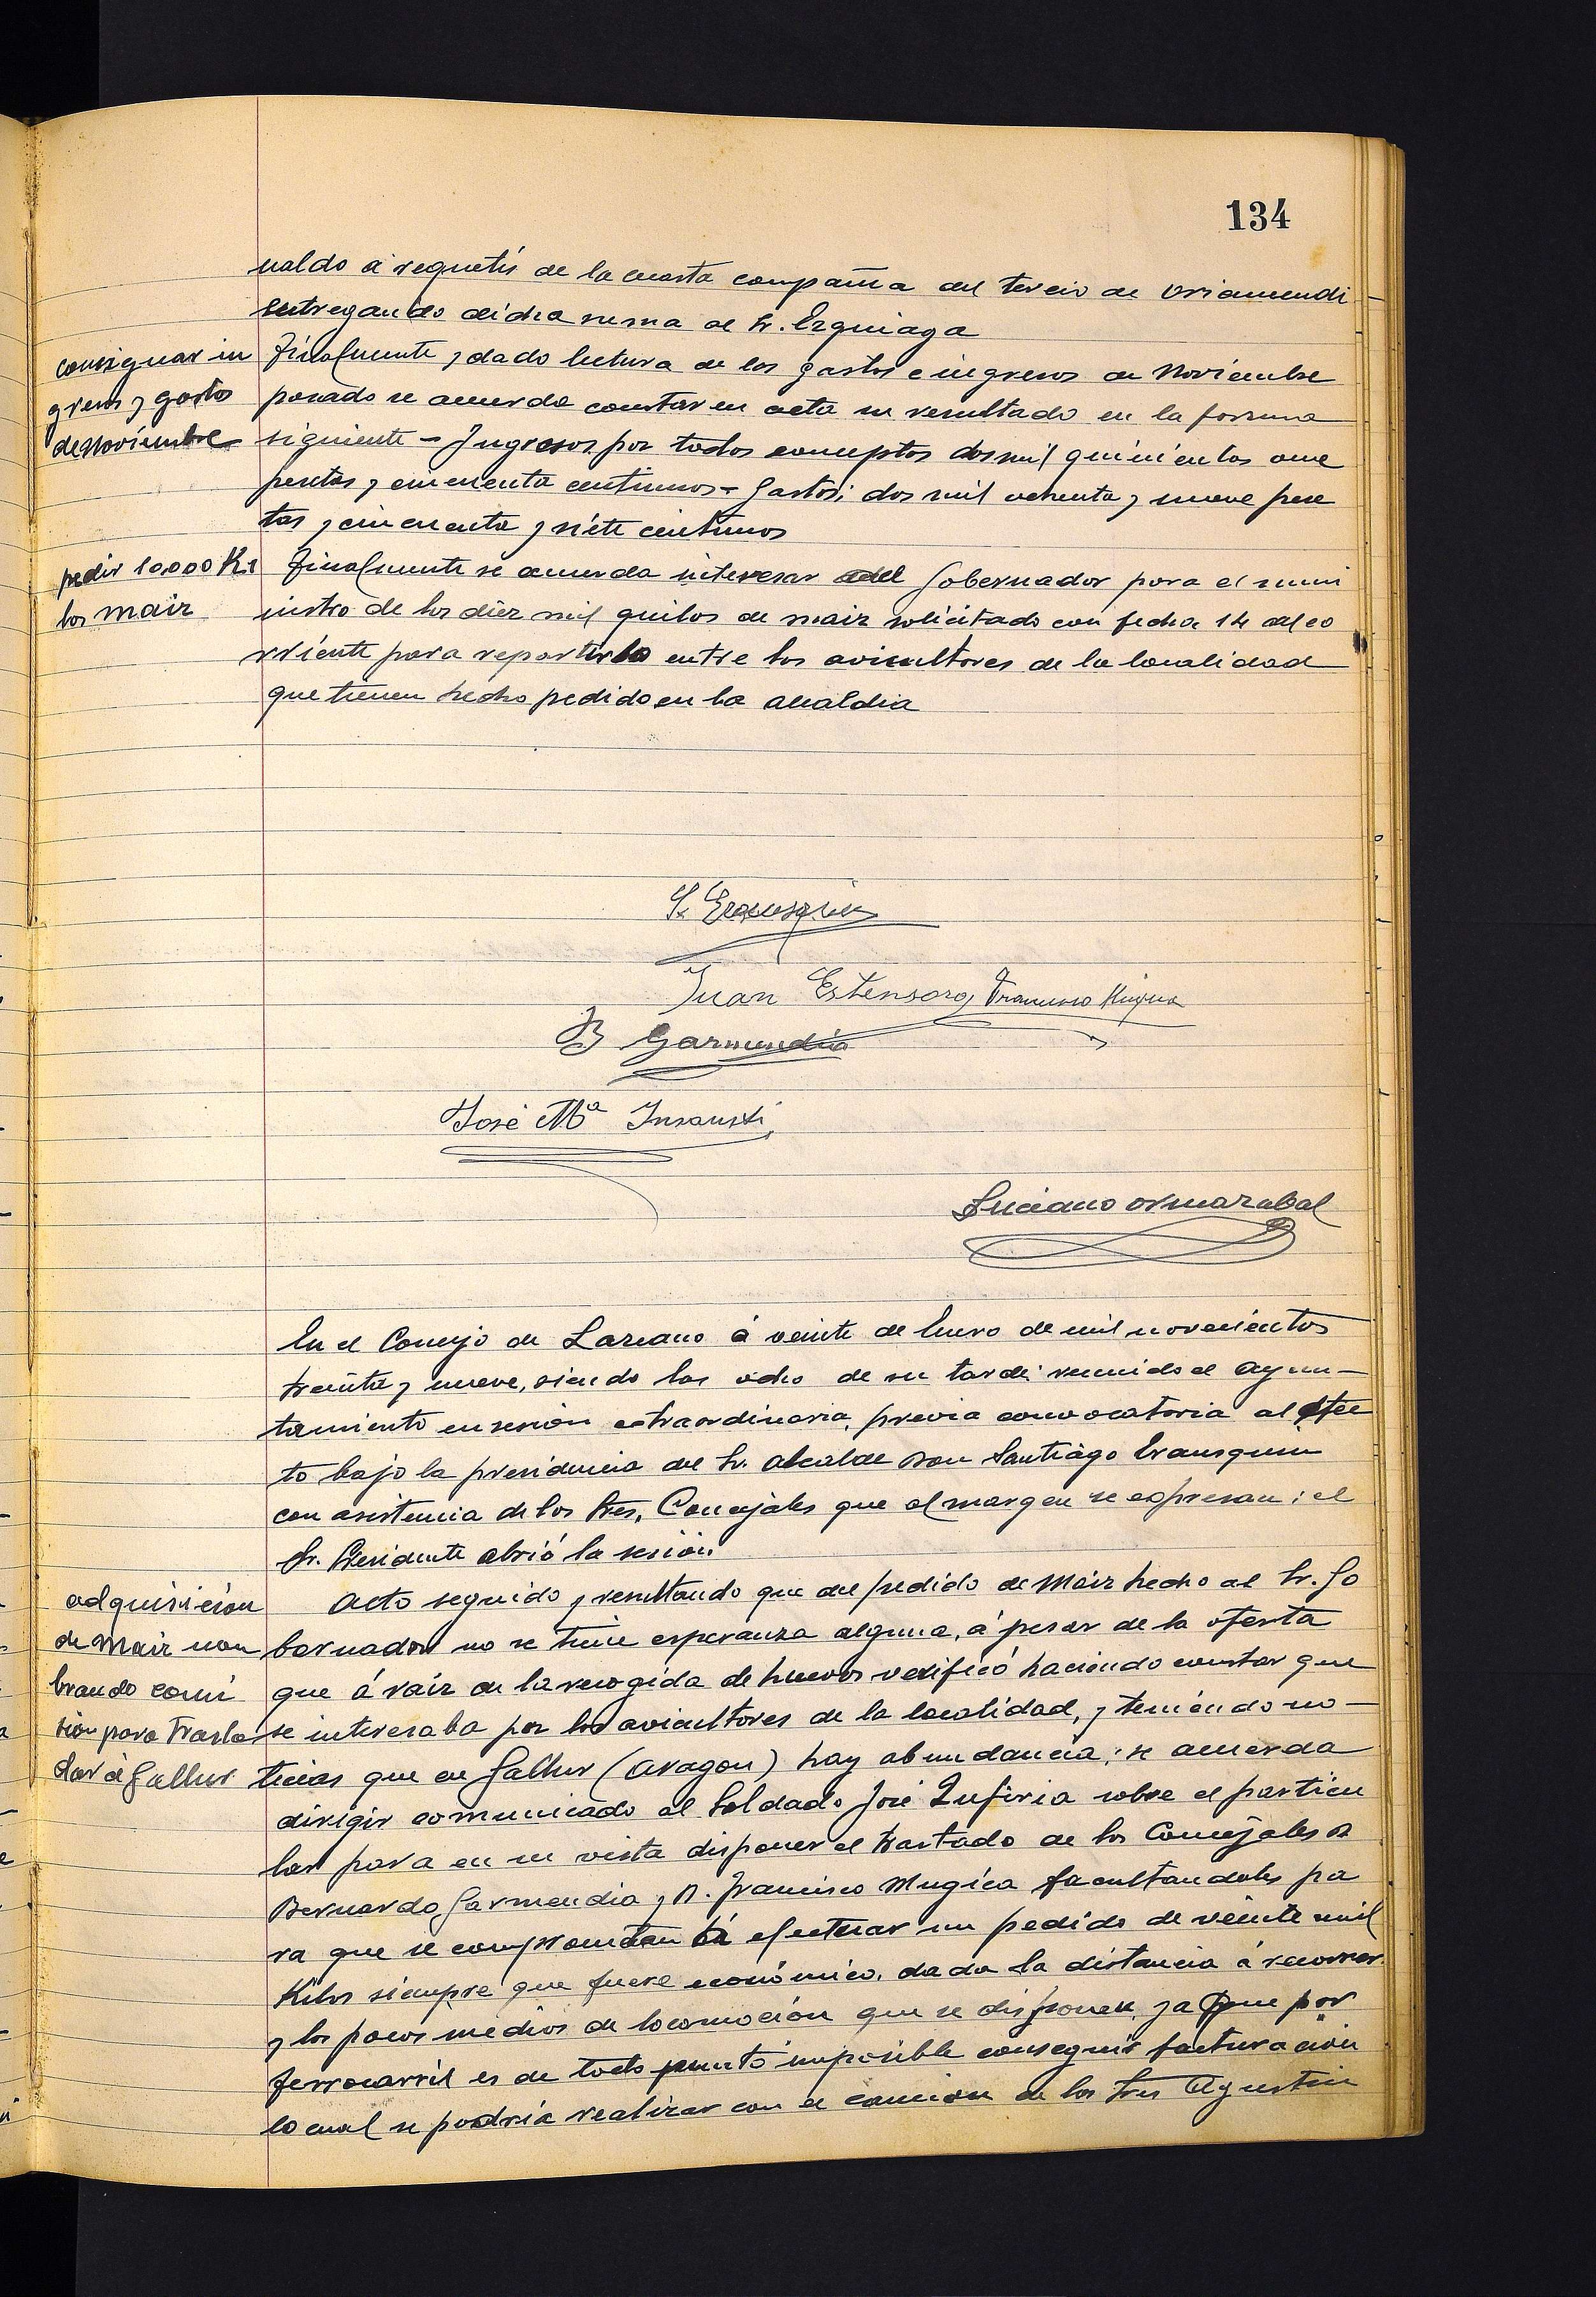 134
naldo á requetés de la cuarta compañia del tercio de Oriamendi
entregando dicha suma al Sr. Erquiaga
consignar in
gresos y gastos
de Noviembre
Finalmente, dado lectura de los gastos e ingresos de Noviembre
pasado se acuerda constar en acta su resultado en la forma
siguiente - Ingresos por todos conceptos dos mil quinientas once
pesetas y cincuenta centimos - Gastos; dos mil ochenta y nueve pese
tas y cincuenta y siete centimos
pedir 10.000 Ki
los maiz
Finalmente se acuerda interesar del Gobernador para el sumi
nistro de los diez mil quilos de maiz solicitado con fecha 14 del co
rriente para repartirlo entre los avicultores de la localidad
que tienen hecho pedido en la alcaldia
S. Erausquin
Juan Estensoro Francisco Mugica
B Garmendia
José Mª Insausti
Luciano Ormazabal
En el Concejo de Lazcano á veinte de Enero de mil novecientos
treinta y nueve, siendo las ocho de su tarde: reunido el Ayun-
tamiento en sesion extraordinaria, previa convocatoria al efec
to bajo la presidencia del Sr. Alcalde Don Santiago Erausquin
con asistencia de los Sres. Concejales que al margen se expresan: el
Sr. Presidente abrió la sesión.
adquisicion
de Maiz nom
brando comi
sion para trasla
dar á Gallur
Acto seguido y resultando que del pedido de Maiz hecho al Sr. Go
bernador no se tiene esperanza alguna, á pesar de la oferta
que á raiz de la recogida de huevos verificó haciendo constar que
se interesaba por los avicultores de la localidad, y teniendo no-
ticias que en Gallur (Aragon) hay abundancia; se acuerda
dirigir comunicado al Soldado José Zufiria sobre el particu
lar para en su vista disponer el trastado de los Concejales D
Bernardo Garmendia y D. Francisco Mugica facultandoles pa
ra que se comprometan á efectuar un pedido de veinte mil
Kilos siempre que fuere económico, dada la distancia á recorrer
y los pocos medios de locomoción que se disponen, ya que por
ferrocarril es de todo punto imposible conseguir facturación
lo cual se podria realizar con el camion de los Sres Agustin